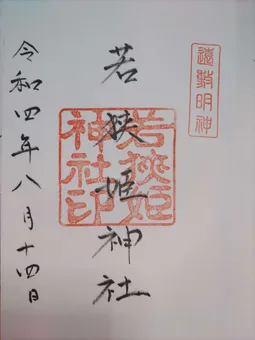 遠敷明神
若狭姫神社
若狹姫
神社印
令和四年八月十四日